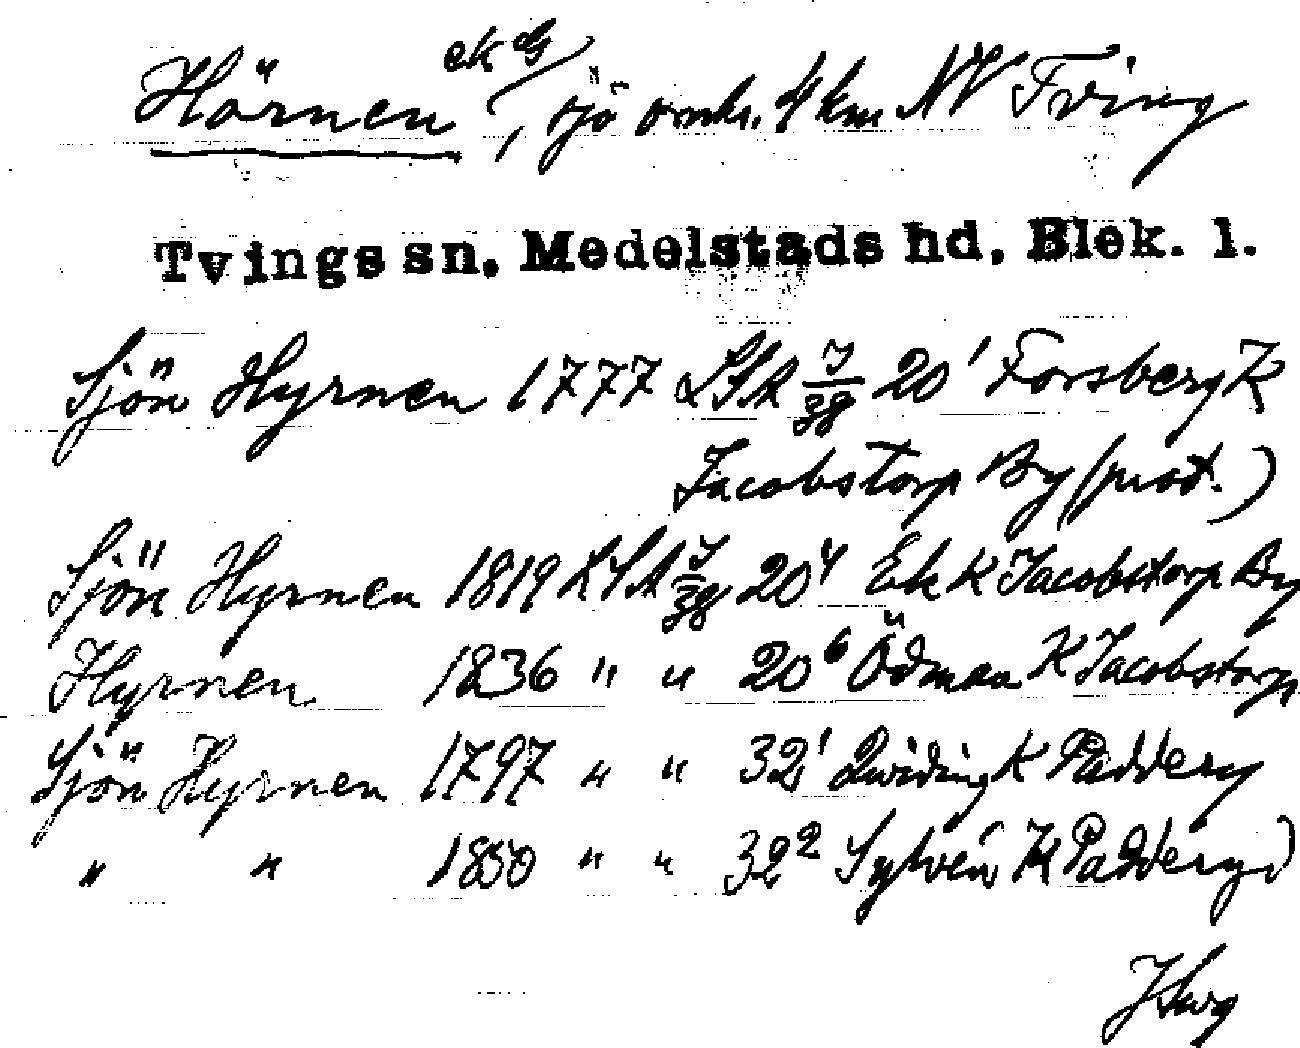 Hörnen ekG, sjö omkr. 4 km NV Tving
Tvings sn. Medelstads hd. Blek. l.
Sjön Hyrnen 1777 LSA J/38 20¹ Forsberg K
Jacobstorp By (prot.)
Sjön Hyrnen 1819 LSA J/38 20⁴ Ek K Jacobstorp By
Hyrnen 1836 " " 20⁶ Ödman K Jacobstorp
Sjön Hyrnen 1797 " " 32¹ Qwiding K Paddery
" " 1850 " " 32² Sylvén K Padderyd